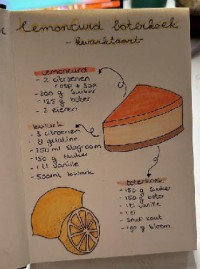 Lemoncurd boterkoek
- kwarktaart -
Lemoncurd
- 2 citroenen
rasp + sap
- 200 g suiker
- 125 g boter
- 3 eieren
kwark
- 3 citroenen
- 11 gelatine
- 250 ml slagroom
- 150 g suiker
- 1 tl vanille
- 500ml kwark
boterkoek
- 150 g suiker
- 150 g boter
- 1 tl vanille
- 1 ei
- snuf zout
- 190 g bloem